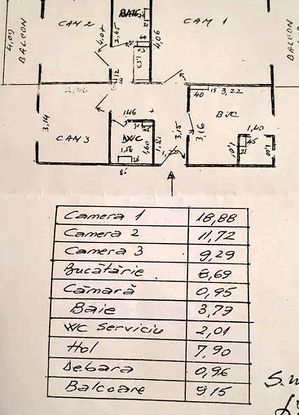 CAM 2
BAIE
CAM 1
4,09
BALCON
2,45
4,04
4,06
BALCON
1,12
40
3,22
3,14
1,46
3,15
3,16
BUC
1,40
CAM 3
WC
1,56
1,60
45
S.
Camera 1 18,88
Camera 2 11,72
Camera 3 9,29
Bucătărie 8,69
Cămară 0,95
Baie 3,73
WC Serviciu 2,01
Hol 7,90
Debara 0,96
Balcoane 9,15